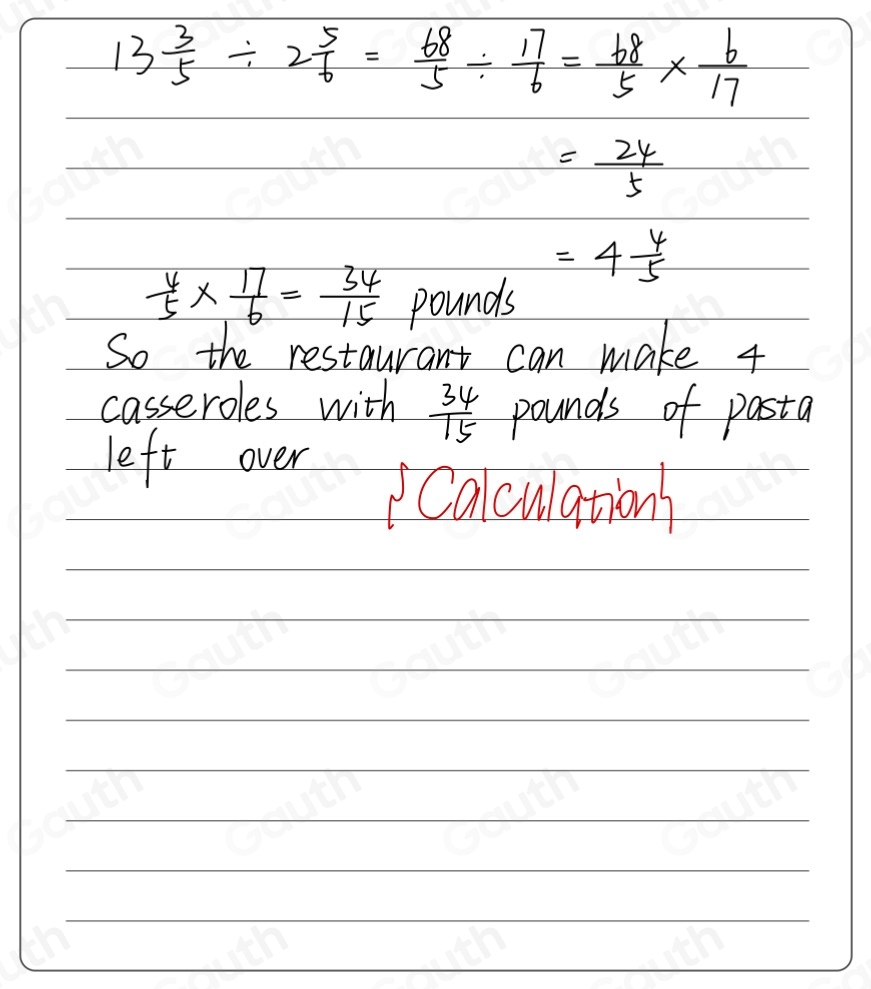 13 3/5 ÷ 2 5/6 = 68/5 ÷ 17/6 = 68/5 × 6/17
= 24/5
= 4 4/5
4/5 × 17/6 = 34/15 pounds
So the restaurant can make 4
casseroles with 34/15 pounds of pasta
left over
{Calculation}
Gauth